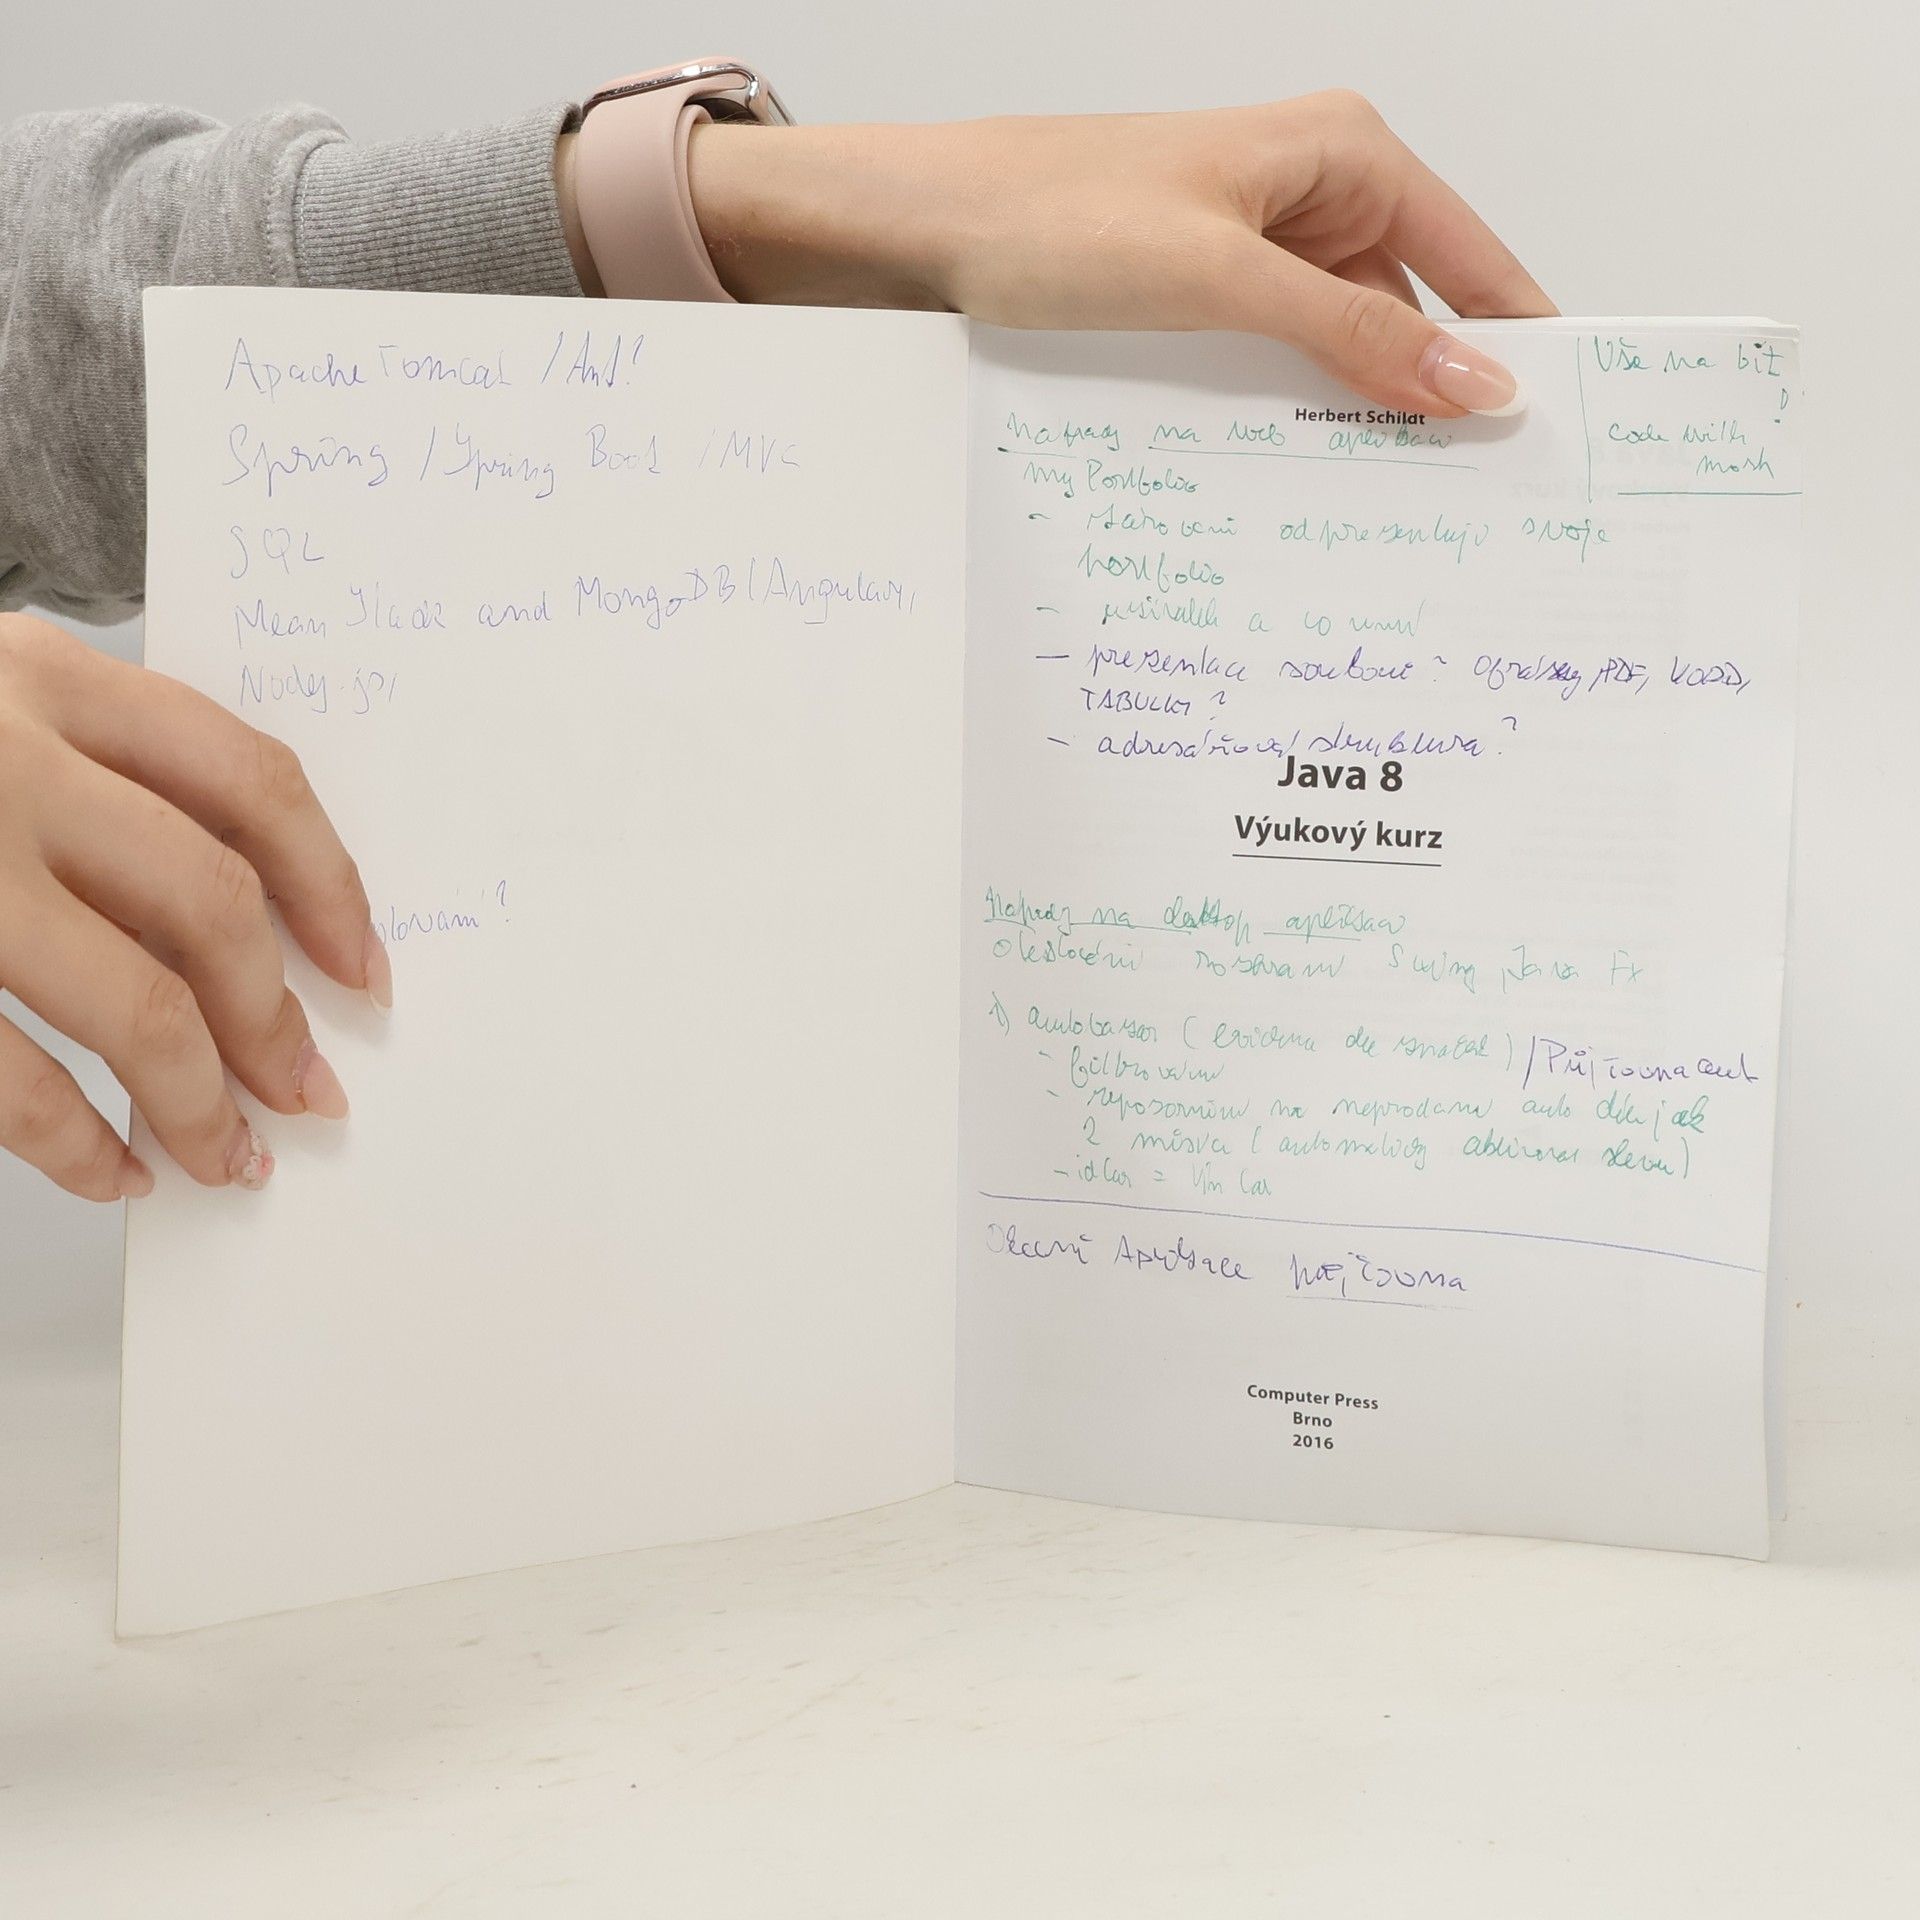 Apache Tomcat / Ant?
Spring / Spring Boot / MVC
SQL
Mean Stack and MongoDB / Angular,
Node.js,
?
Vše na bít
!
code with
mosh
Herbert Schildt
Nápady na web aplikaci
my Portfolio
- odprezentuji svoje
portfolio
- a co umí
- prezentace souborů? PDF, WORD,
TABULKY?
- adresářová struktura?
Java 8
Výukový kurz
Nápady na desktop aplikaci
rozhraní Swing, Java Fx
1) autobazar ( evidence dle značek ) / Půjčovna aut
- filtrování
- upozornění na neprodané auto déle jak
2 měsíce ( automaticky aktivovat slevu )
- idCar = Vin Car
Aplikace půjčovna
Computer Press
Brno
2016